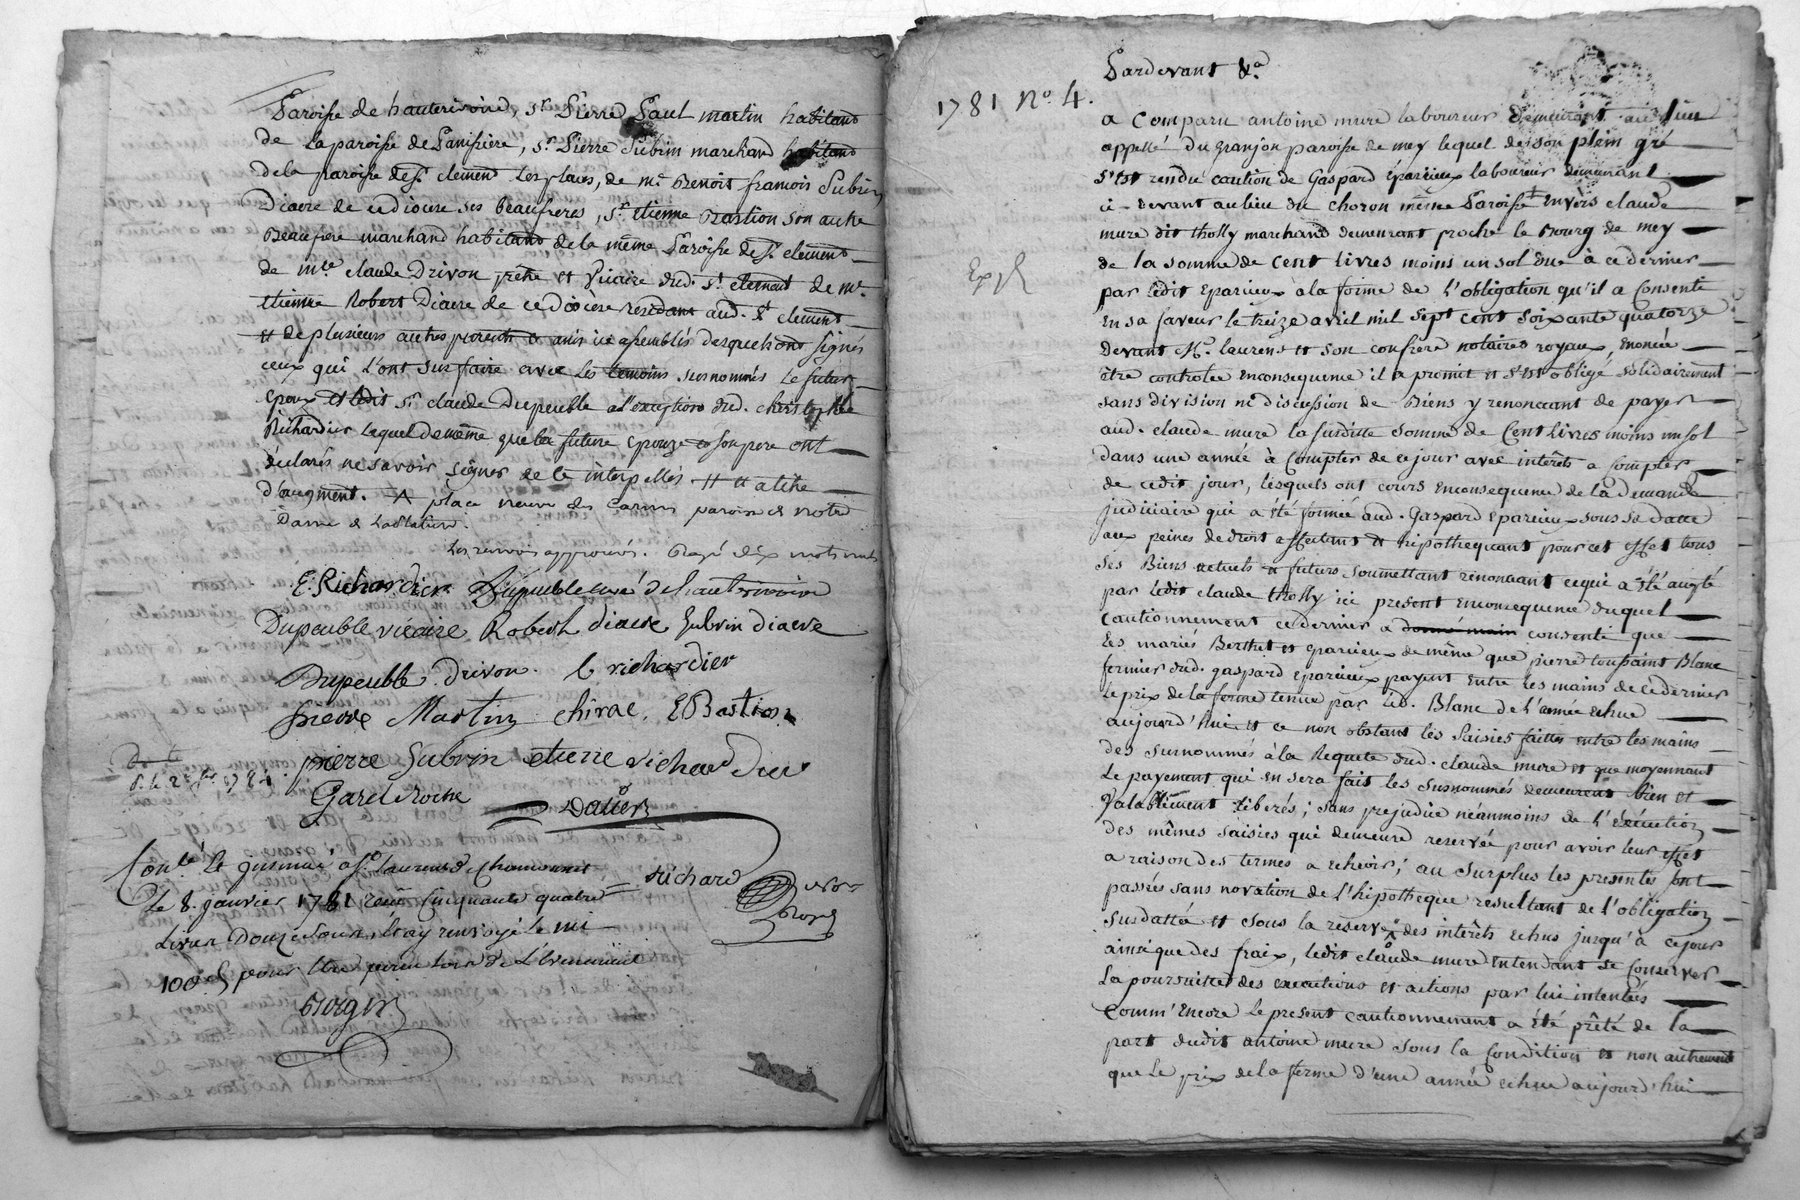 Paroisse de hauterivoire, Sr. Pierre Paul martin habitant
de la paroisse de Panissière, Sr. Pierre Subrin marchand habitant
de la paroisse de St. clement les places, de me. Benoit francois Subrin
Diacre de ce diocèse ses beaufreres, Sr. etienne Bastion son autre
Beaufrere marchand habitant de la même Paroisse de St. clement
de mre. claude Drivon prêtre et Vicaire dud. St. clement de me.
etienne Robert Diacre de ce diocèse residant aud. St. clement
et de plusieurs autres parents et amis ici assemblés desquels ont signés
ceux qui l'ont sus faire avec les temoins susnommés le futur
Epoux et ledit Sr. claude Dupeuble a l'exception dud. christophle
Richardier lequel de même que la future epouze et son pere ont
déclarés ne savoir signer de ce interpellés
d'augment. place neuve des Carmes paroisse de notre
Dame de la platiere.
Les renvois approuvés. Rayé dix mots nuls
E. Richardier Dupeuble curé d'hauterivoire
Dupeuble vicaire Robert diacre Subrin diacre
Dupeuble Drivon. C richardier
pierre Martin chirac. E Bastion
pierre Subrin etienne richardier
Garel Roche
Dalier
Conlé. le
Le 8. janvier 1781 reçu Cinquante quatre
Livres Douze Sous,
Richard
1781 No. 4.
Pardevant &a.
a Comparu antoine mure laboureur demeurant au lieu
appellé Du granjon paroisse de mey lequel de son plein gré
s'est rendu caution de Gaspard éparieux laboureur demeurant
ci-devant au lieu du choron même Paroisse Envers claude
mure dit tholly marchand demeurant proche le Bourg de mey
de la somme de cent livres moins un sol Due à ce dernier
Exp.
par ledit Eparieux a la forme de l'obligation qu'il a Consenti
En sa faveur le treize avril mil sept cent soixante quatorze
devant Me. laurens et son confrere notaires royaux, énoncée
être controlée Enconsequence il a promit et s'est obligé solidairement
sans division ni discussion de Biens y renoncant de payer
aud. claude mure la susditte somme de Cent livres moins un sol
dans une année à Compter de ce jour avec intérêts a Compter
de cedit jour, lesquels ont cours Enconsequence de la demande
judiciaire qui a été formée aud. Gaspard Eparieux sous sa datte
aux peines de droit affectant et hipothequant pour cet effet tous
ses Biens actuels et futurs soumettant renoncant ce qui a été accepté
par ledit claude tholly ici present Enconsequence duquel
Cautionnement ce dernier a donné main consenti que
les mariés Berthet et eparieux de même que pierre toussaint Blanc
fermier dud. gaspard eparieux payent Entre les mains de ce dernier
le prix de la ferme tenue par led. Blanc de l'année echue
aujourd'hui et ce non obstant les saisies faittes entre les mains
des susnommés à la Requete dud. claude mure et que moyennant
le payement qui en sera fait les susnommés demeurent bien et
Valablement liberés; sans prejudice néanmoins de l'exécution
des mêmes saisies qui demeure reservée pour avoir leur effet
a raison des termes a echeoir; au surplus les presentes sont
passées sans novation de l'hipotheque resultant de l'obligation
susdattée et sous la reserve des intérêts echus jusqu'à ce jour
ainsi que des fraix, ledit claude mure entendant se conserver
la poursuitte des executions et actions par lui intentées
Comm'Encore le present cautionnement a été prêté de la
part dudit antoine mure sous la Condition et non autrement
que le prix de la ferme d'une année echue aujourd'hui